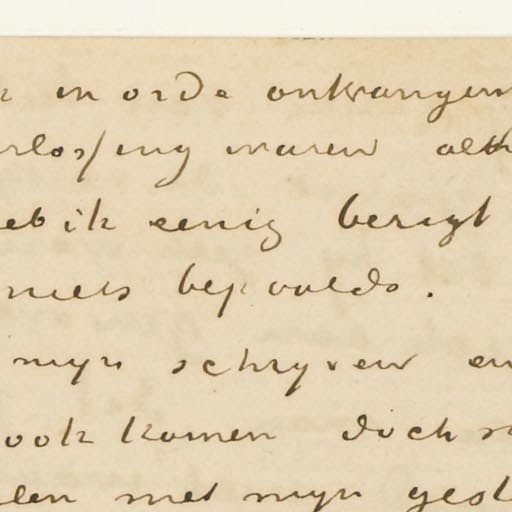 in orde ontvangen
waren
eb ik eenig berigt
niets bepaalds.
myn schryven en
ook komen doch
len met myn